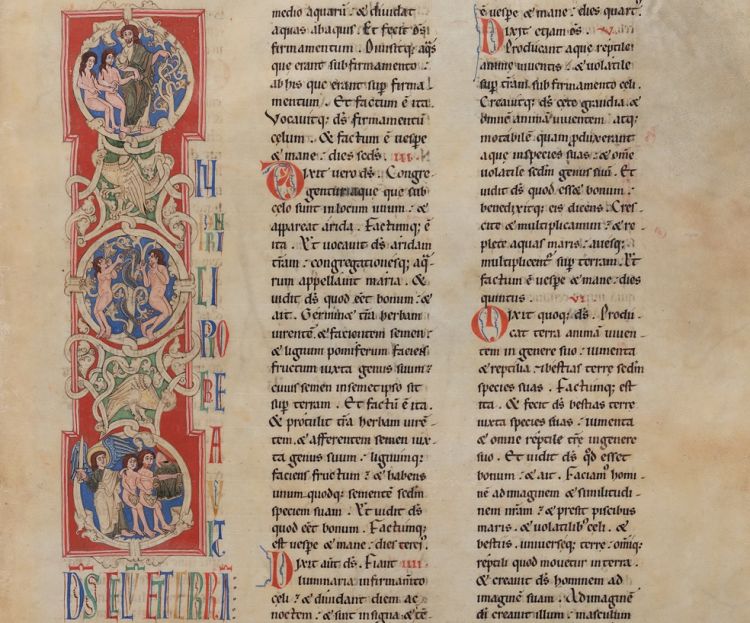 N
PRIN
CI
PIO
CRE
A
V
IT
DS CELV ET TERRA
medio aquarū ⁊ diuidat
aquas abaquis. Et fecit dš
firmamentum. Diuisitq; aq̄s
que erant sub firmamento
ab his que erant sup firma
mentum. Et factum ē ita.
Vocauitq; dš firmamentū
celum. & factum ē uespe
& mane. dies sedš. III.
Dixit uero dš. Congre
gentur aque que sub
celo sunt in locum unum: &
appareat arida. Factumq; ē
ita. Et uocauit dš aridam
trām: congregationesq; aq̄
rum appellauit maria. &
uidit dš quod eēt bonum: &
ait. Germinet tr̄a herbam
uirentē & facientem semen:
& lignum pomiferum faciens
fructum iuxta genus suum:
cuius semen insemetipso sit
sup terram. Et factū ē ita.
& protulit tr̄a herbam uirē
tem. & afferentem semen iux
ta genus suum: lignumq;
faciens fructum: & habens
unum quodq; sementē sedm̄
speciem suam. Et uidit dš
quod eēt bonum. Factumq;
est uespe & mane: dies tercī.
Dixit aut̄ dš. Fiant IIII.
luminaria infirmam̄to
celi: & diuidant diem ac
noctem: & sint insigna & tē-
ē uespe & mane: dies quart'.
Dixit etiam dš. V.
Producant aque reptile
anime uiuentis: & uolatile
sup trām sub firmamento celi.
Creauitq; dš cete grandia. &
omnem animā uiuentem atq;
motabilē quam produxerant
aque inspecies suas: & om̄e
uolatile sedm̄ genus suū. Et
uidit dš quod esset bonum:
benedixitq; eis dicens. Cres
cite & multiplicamini: & re-
plete aquas maris: auesq;
multiplicent' sup terram. Et
factum ē uespe & mane: dies
quintus. VI.
Dixit quoq; dš. Produ
cat terra animā uiuen-
tem in genere suo: iumenta
& reptilia: & bestias terre sedm̄
species suas. Factumq; est
ita. & fecit dš bestias terre
iuxta species suas: iumenta
& omne reptile tr̄e ingenere
suo. Et uidit dš qd̄ esset
bonum: & ait. Faciam' homi-
nē ad imaginem & similitudi-
nem nr̄am: & presit piscibus
maris. & uolatilib' celi. &
bestiis. uniuerseq; terre: omīq;
reptili quod mouetur in terra.
& creauit dš hominem ad
imaginē suam. Ad imaginem
di creauit illum: masculum